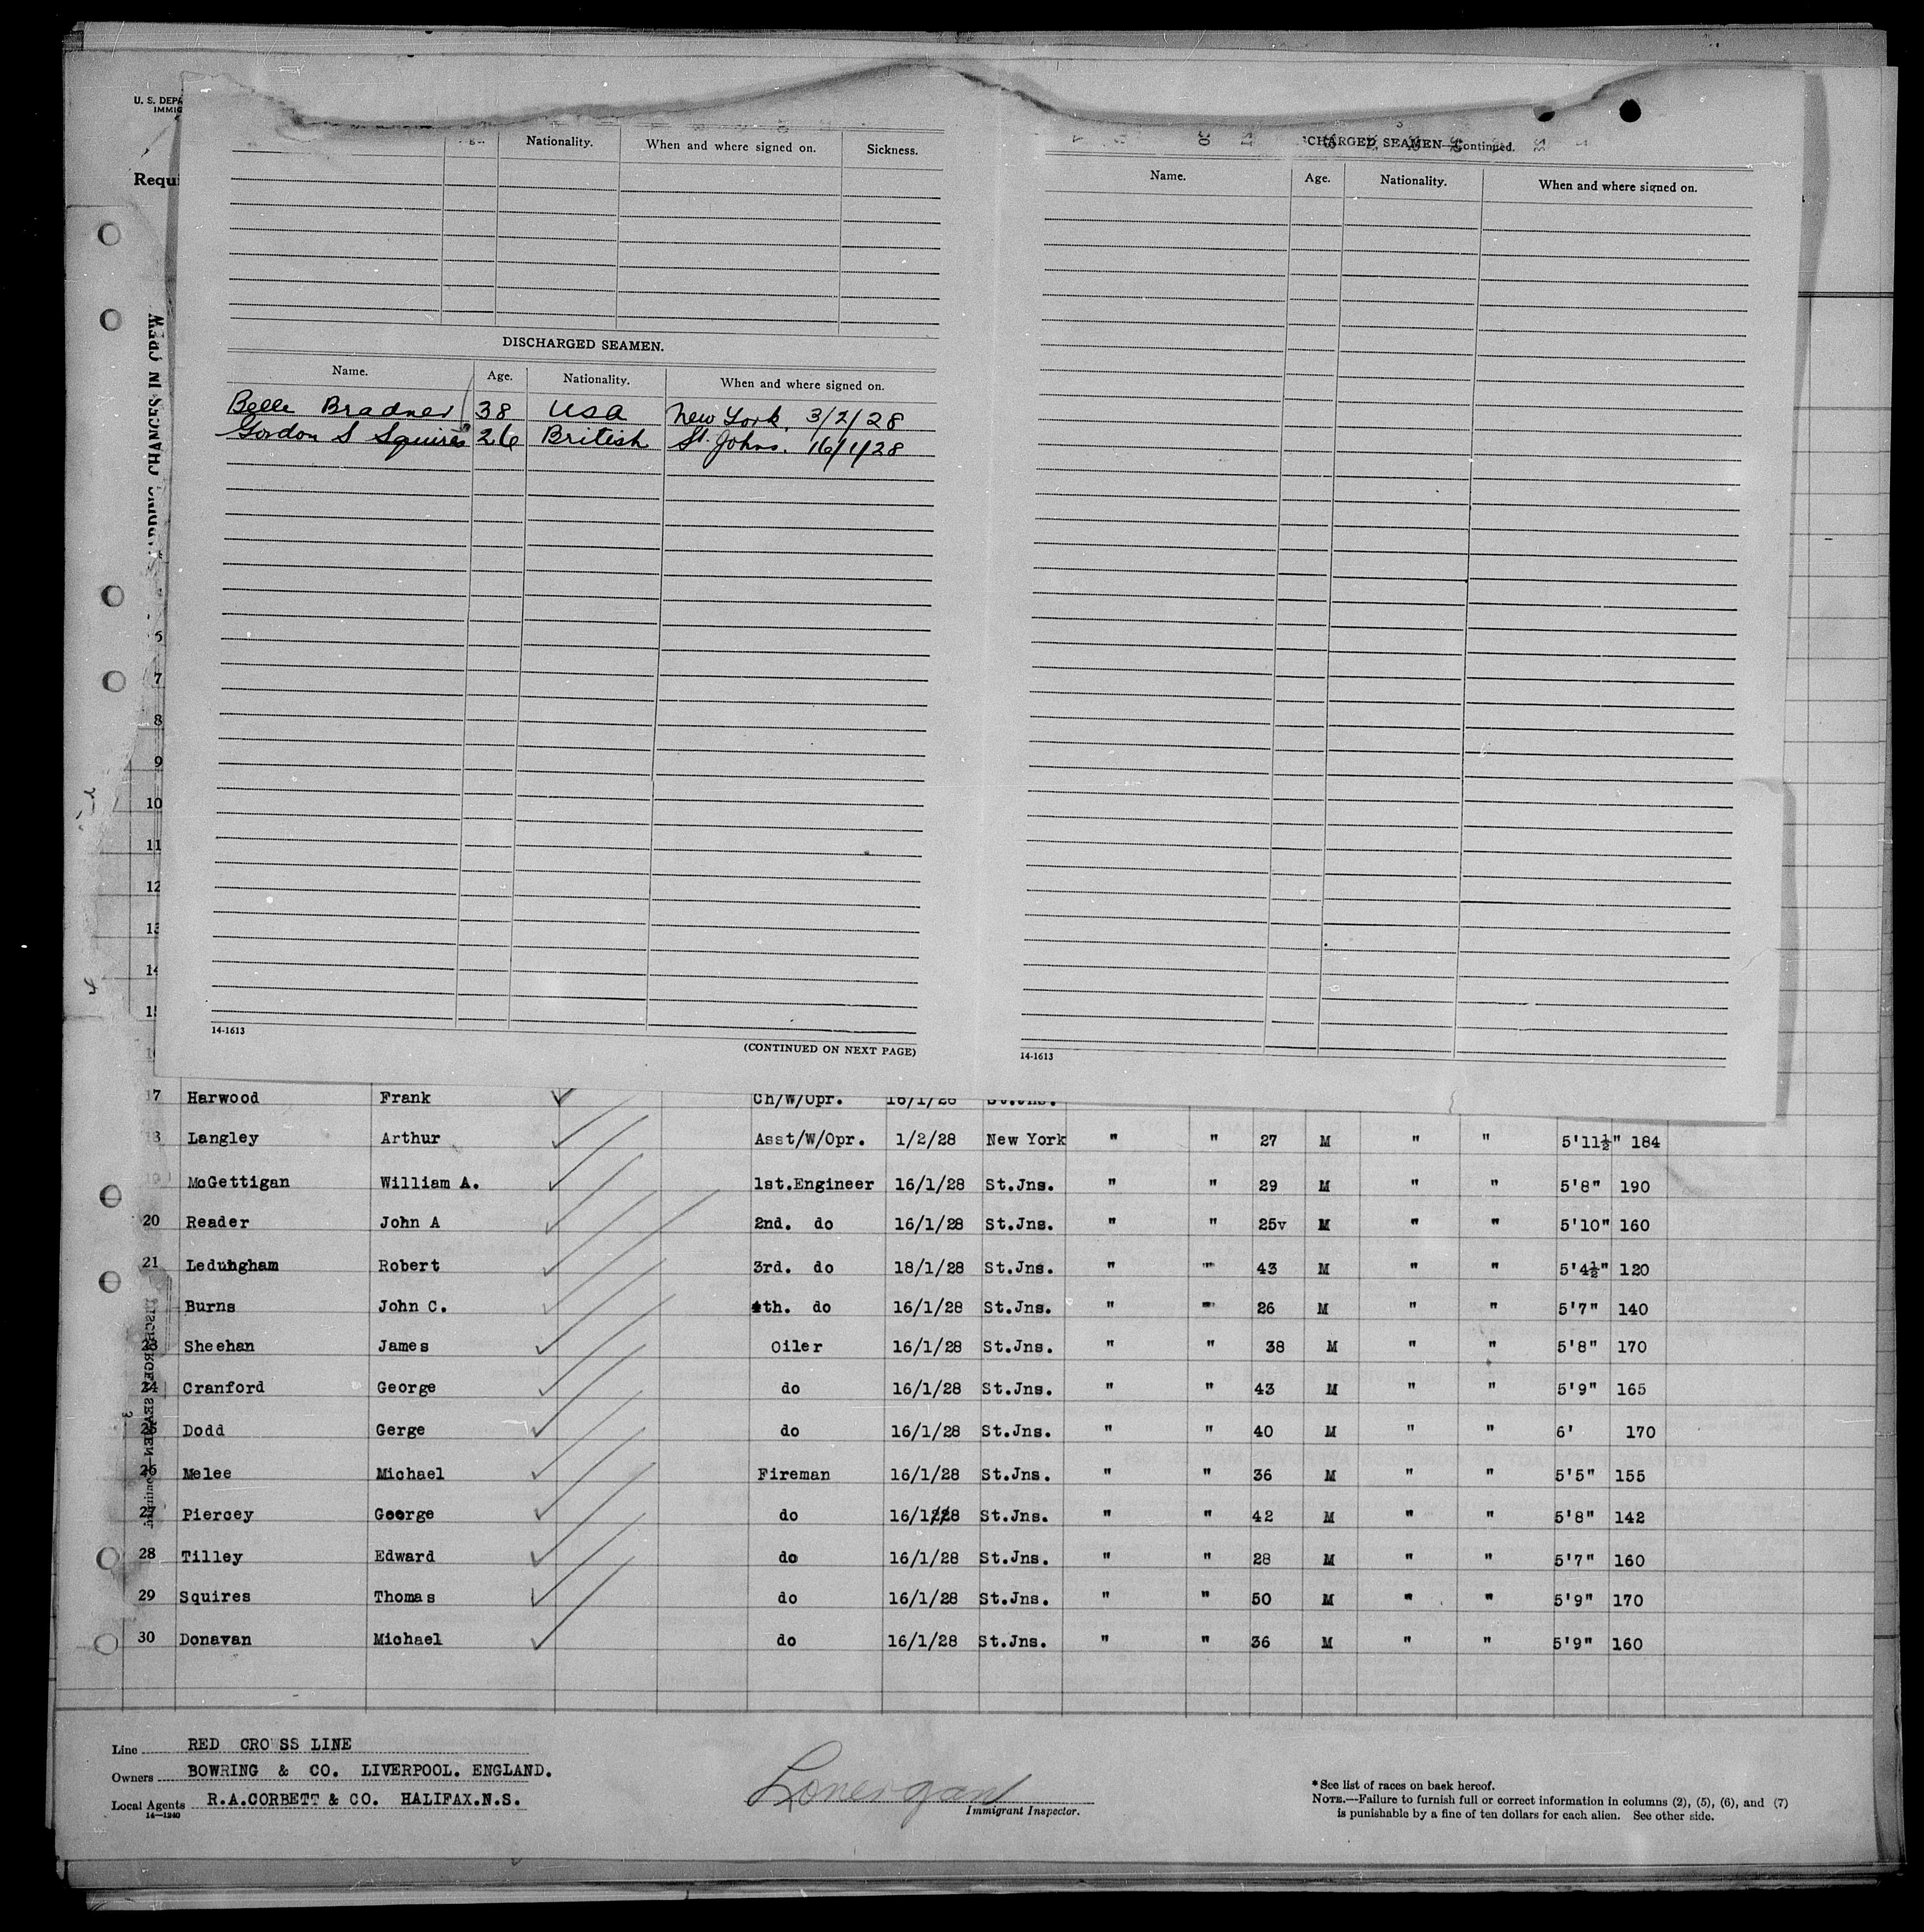 U. S. DEPA
IMMIG
Requi
Nationality. When and where signed on. Sickness.
DISCHARGED SEAMEN.
Name. Age. Nationality. When and where signed on.
Belle Bradner 38 USA New York. 3/2/28
Gordon S Squires 26 British St. Johns. 16/1/28
14-1613
(CONTINUED ON NEXT PAGE)
CHARGED SEAMEN—Continued.
Name. Age. Nationality. When and where signed on.
14-1613
CHANGES IN CREW
5
7
8
9
10
11
12
13
14
17 Harwood Frank Ch/W/Opr. 16/1/28 St.Jns.
Langley Arthur Asst/W/Opr. 1/2/28 New York " " 27 M " " 5'11½" 184
19 McGettigan William A. 1st.Engineer 16/1/28 St.Jns. " " 29 M " " 5'8" 190
20 Reader John A 2nd. do 16/1/28 St.Jns. " " 25v M " " 5'10" 160
21 Ledungham Robert 3rd. do 18/1/28 St.Jns. " " 43 M " " 5'4½" 120
Burns John C. 4th. do 16/1/28 St.Jns. " " 26 M " " 5'7" 140
23 Sheehan James Oiler 16/1/28 St.Jns. " " 38 M " " 5'8" 170
24 Cranford George do 16/1/28 St.Jns. " " 43 M " " 5'9" 165
25 Dodd Gerge do 16/1/28 St.Jns. " " 40 M " " 6' 170
26 Melee Michael Fireman 16/1/28 St.Jns. " " 36 M " " 5'5" 155
27 Piercey George do 16/1/28 St.Jns. " " 42 M " " 5'8" 142
28 Tilley Edward do 16/1/28 St.Jns. " " 28 M " " 5'7" 160
29 Squires Thomas do 16/1/28 St.Jns. " " 50 M " " 5'9" 170
30 Donavan Michael do 16/1/28 St.Jns. " " 36 M " " 5'9" 160
Line RED CROSS LINE
Owners BOWRING & CO. LIVERPOOL. ENGLAND.
Local Agents R.A.CORBETT & CO. HALIFAX.N.S.
14—1240
Lonergan
Immigrant Inspector.
*See list of races on back hereof.
NOTE.—Failure to furnish full or correct information in columns (2), (5), (6), and (7)
is punishable by a fine of ten dollars for each alien. See other side.